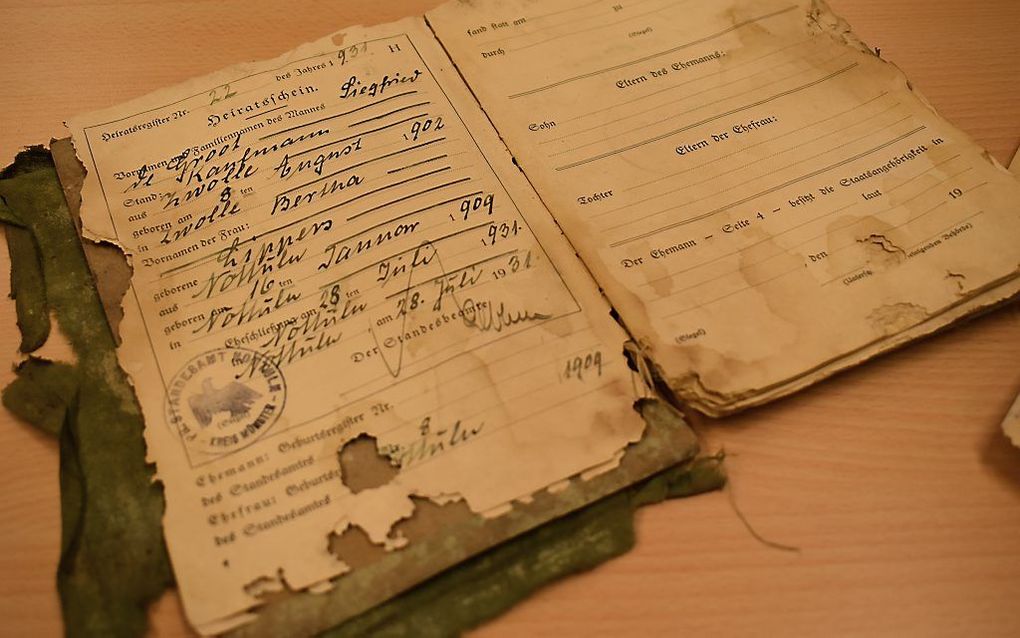 des Jahres 1931. H
Heiratsregister Nr. 22
Heiratsschein.
Vornamen und Familiennamen des Mannes Siegfried
de Groot
Stand: Kaufmann
aus Zwolle
geboren am 8 ten August 1902
in Zwolle
Vornamen der Frau: Bertha
geborene Lippers
aus Nottuln
geboren am 16 ten Januar 1909
in Nottuln
Eheschließung am 28 ten Juli 1931.
in Nottuln
Nottuln am 28. Juli 1931.
Der Standesbeamte
STANDESAMT NOTTULN
KREIS MÜNSTER
(Siegel)
Ehemann: Geburtsregister Nr.
des Standesamtes
Ehefrau: Geburts Nr. 8 1909
des Standesamtes Nottuln
fand statt am zu
durch (Siegel)
Eltern des Ehemanns:
Sohn
Eltern der Ehefrau:
Tochter
Der Ehemann — Seite 4 — besitzt die Staatsangehörigkeit in
laut
, den 19
(Siegel)